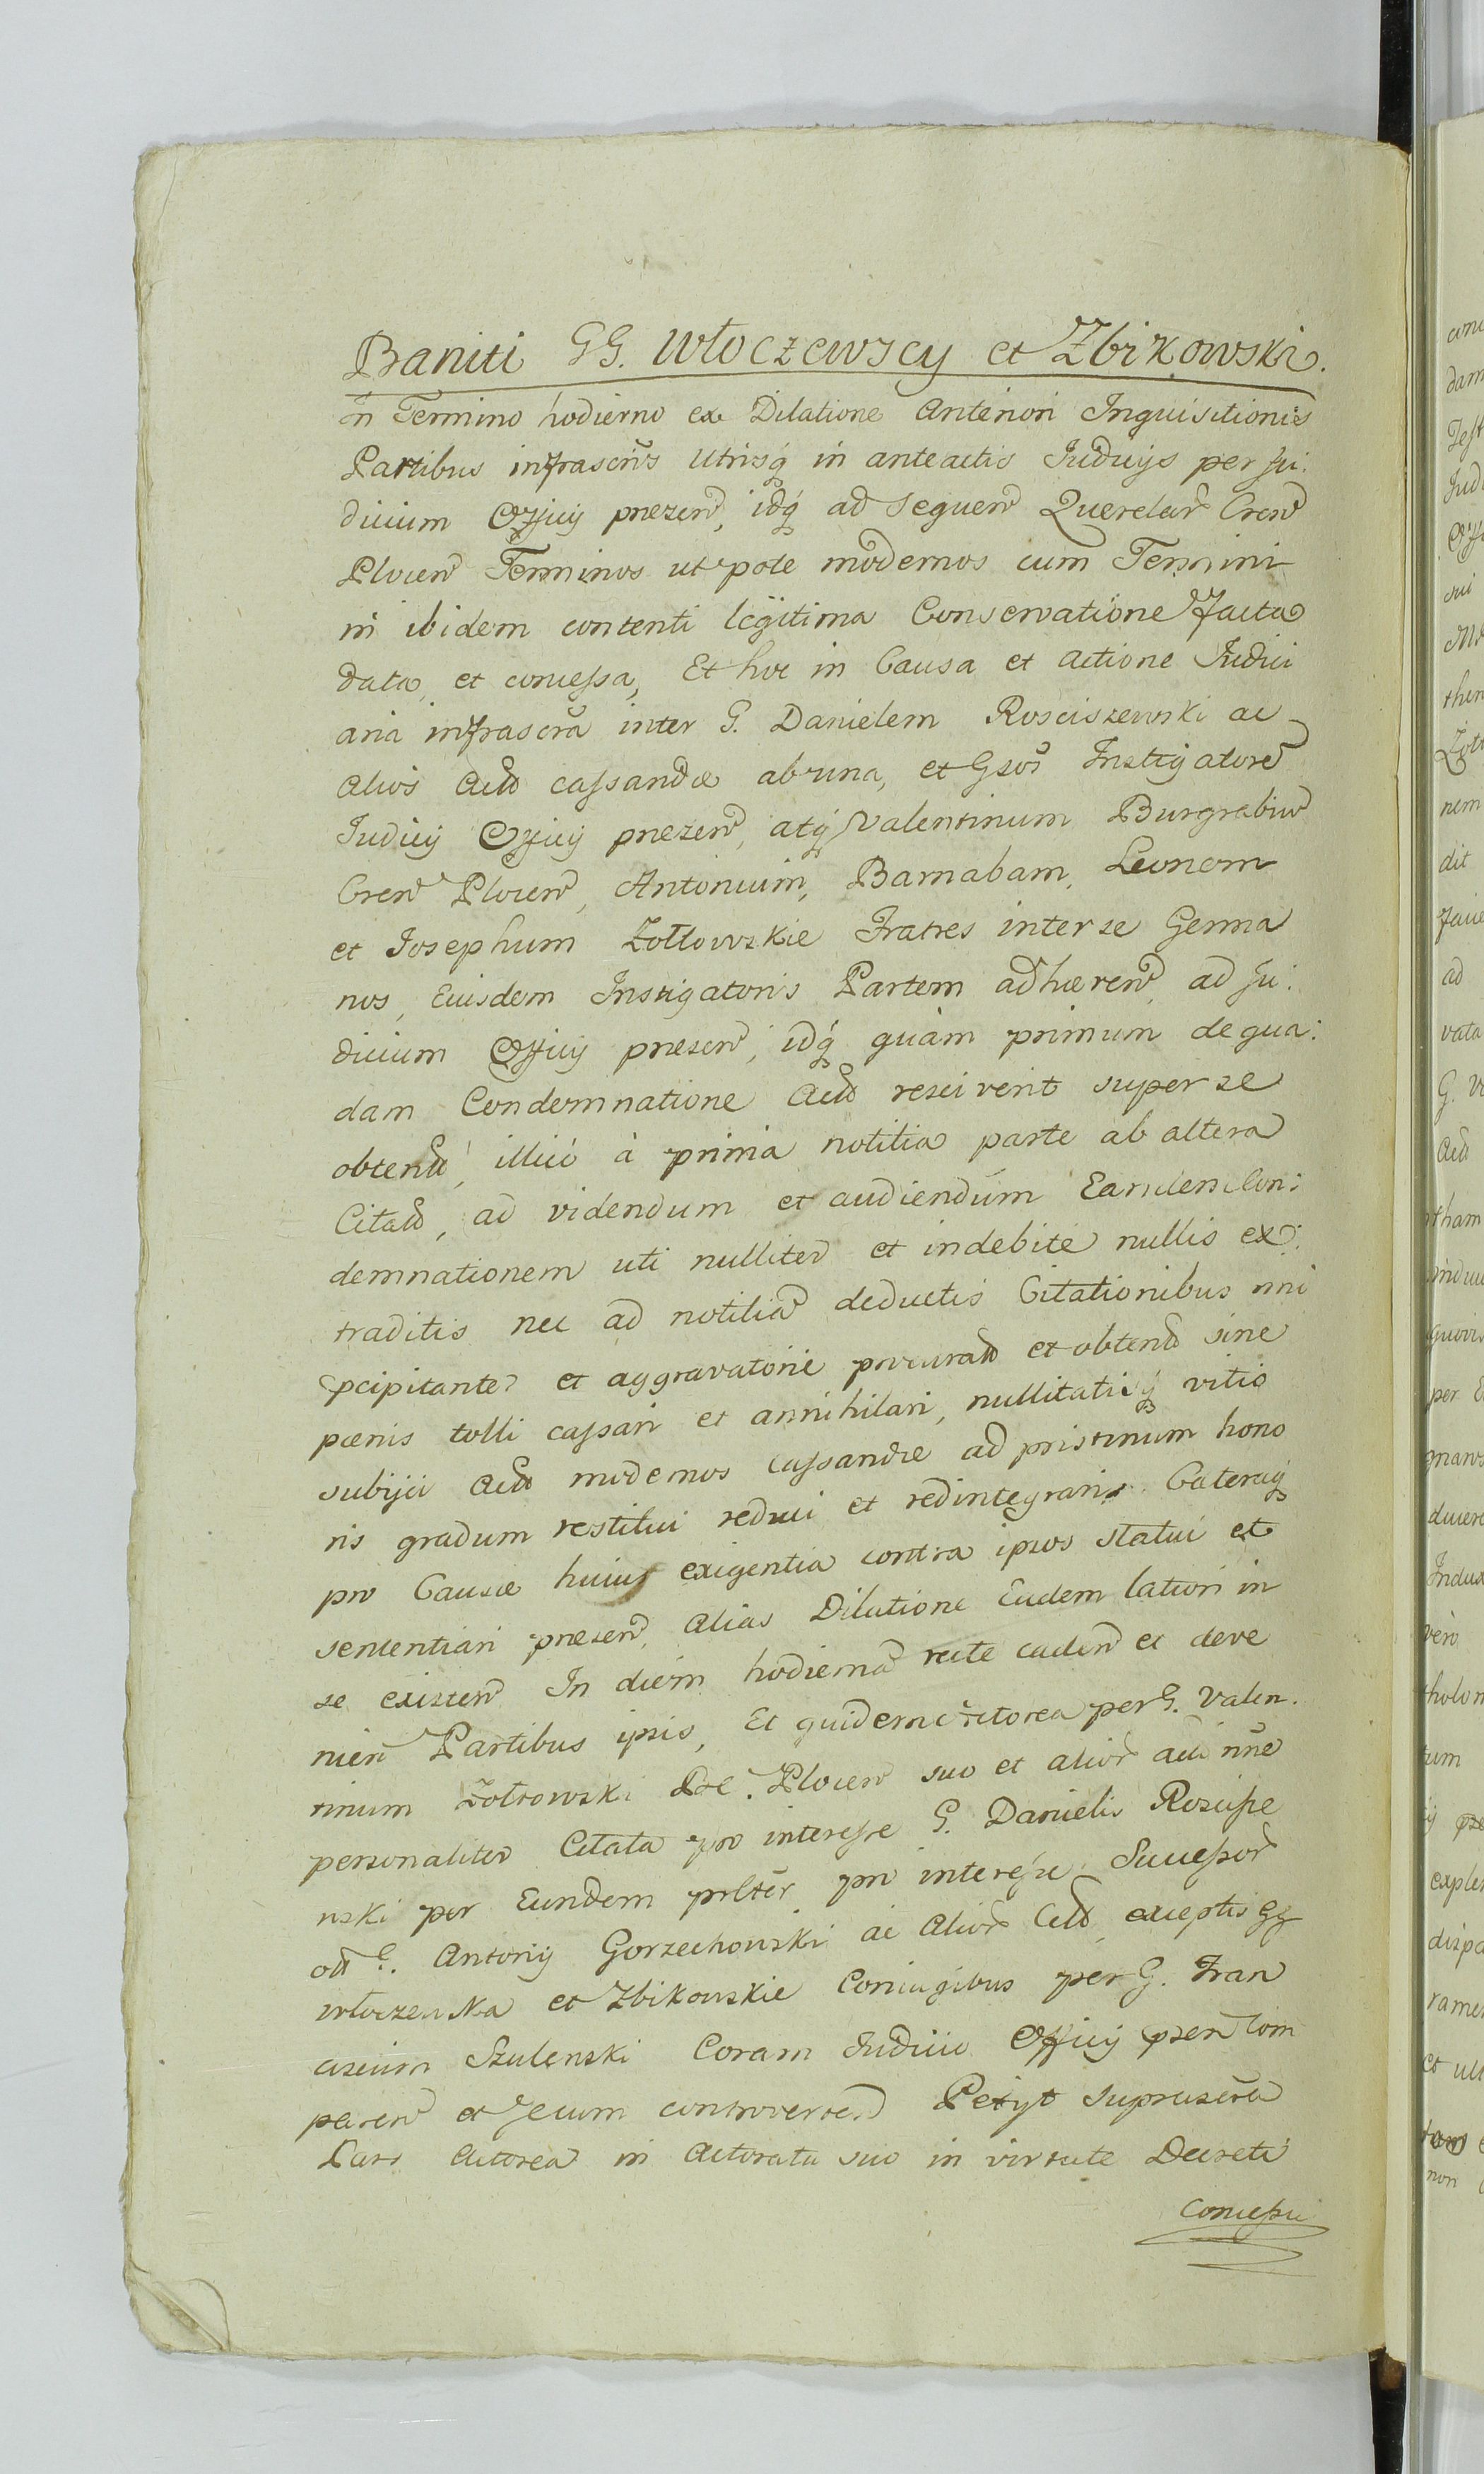 Baniti GG. Włoczewscy et Zbikowski.
In Termino hodierno ex Dilatione Anteriori Inquisitionis
Partibus infrascrīs Utrisq́ in anteactis Iudicijs per Iu:
dicium Officij praesen, idq́ ad Sequen Querelar Cren
Plocen Terminos utpote modernos cum Termini
in ibidem contenti legitima Conservatione facta
data, et concessa, Et hoc in Causa et Actione Iudici
aria infrascrā inter G. Danielem Rosciszewski ac
Alios Act cassandae ab una, et Gsos Instigatore
Iudicij Officij praesen, atq́ Valentinum Burgrabiu
Cren Plocen, Antonium, Barnabam, Leonem
et Iosephum Zołtowskie Fratres inter se Germa
nos, Eiusdem Instigatoris Partem adhaeren, ad Iu:
dicium Officij praesen, idq́ quàm primum de qua:
dam Condemnatione Act resciverit super se
obtent, illicò à prima notitia parte ab altera
Citat, ad videndum et audiendum Eandem Con:
demnationem uti nulliter et indebitè nullis ex:
traditis nec ad notitia deductis Citationibus mni
pcipitanter et aggravatoriè procurat et obtent sine
paenis tolli cassari et annihilari, nullitatisq́ vitio
subijci Act modernos cassandae ad pristinum hono
ris gradum restitui reduci et redintegrari. Caeteraq́
pro Causae huius exigentia contra ipsos statui et
sententiari praesen, Alias Dilatione Eadem latiori in
se existen In diem hodierna recte caden et deve
nien Partibus ipsis, Et quidem Actorea per G. Valen.
tinum Zołtowski Plocen suo et alior act nne
personaliter Citata pro interesse G. Danielis Roscisze
wski per Eundem prltēr pro interesse Successor
olī G. Antonij Gorzechowski ac Alior Citt, exceptis GG
Włoczewska et Zbikowskie Coniugibus per G. Fran
ciscum Szulenski Coram Iudicio Officij psen Com
paren et secum controverten Petijt Suprascrā
Pars Actorea in Actoratu suo in virtute Decreti
Concessi